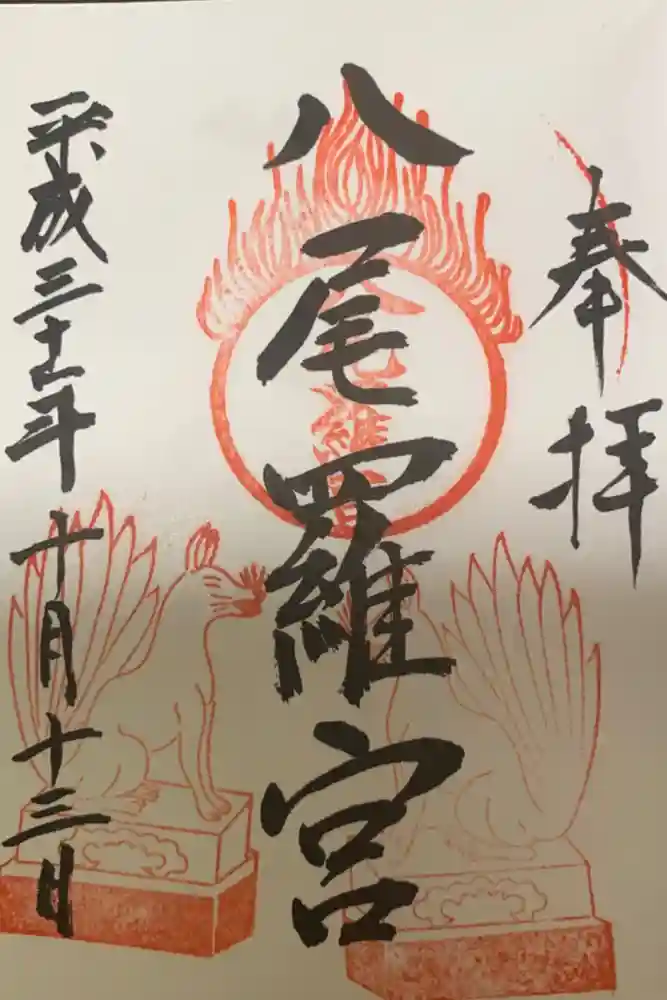 奉拝
八尾羅宮
平成三十年十月十三日